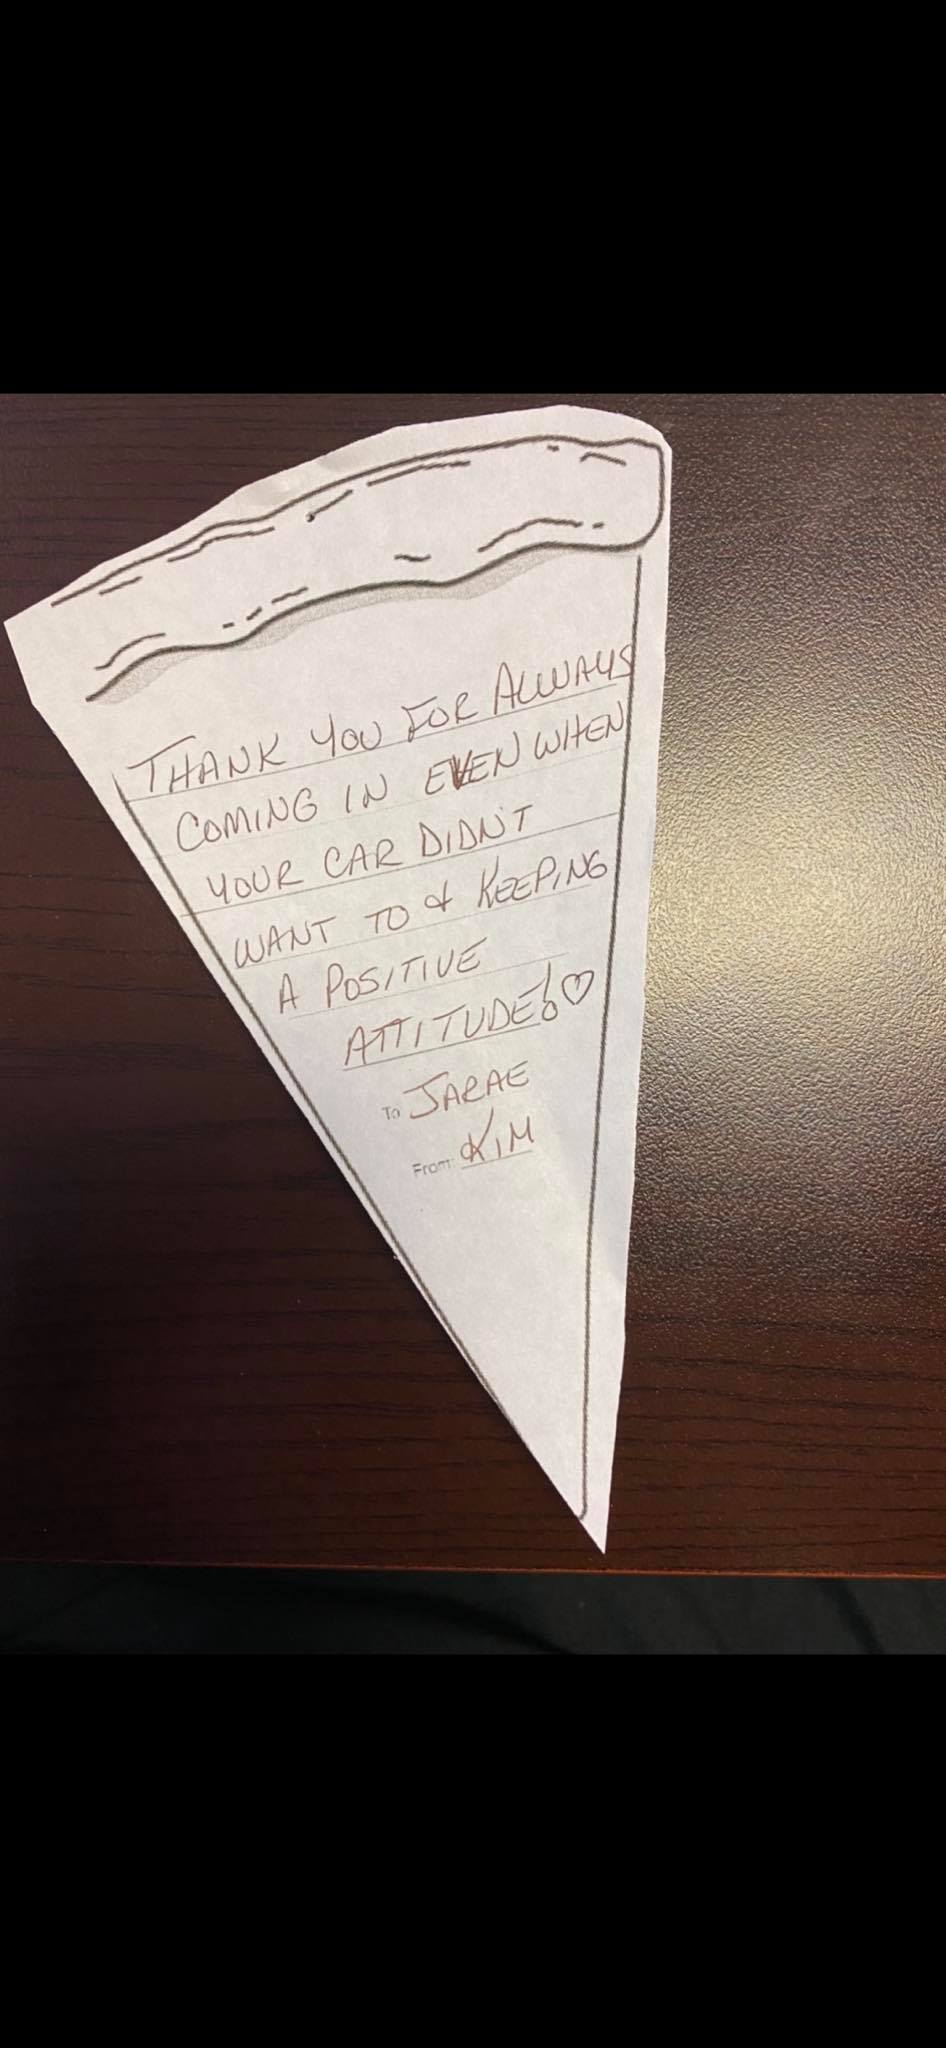 THANK YOU FOR ALWAYS
COMING IN EVEN WHEN
YOUR CAR DIDN'T
WANT TO & KEEPING
A POSITIVE
ATTITUDE!♡
To JARAE
From KIM